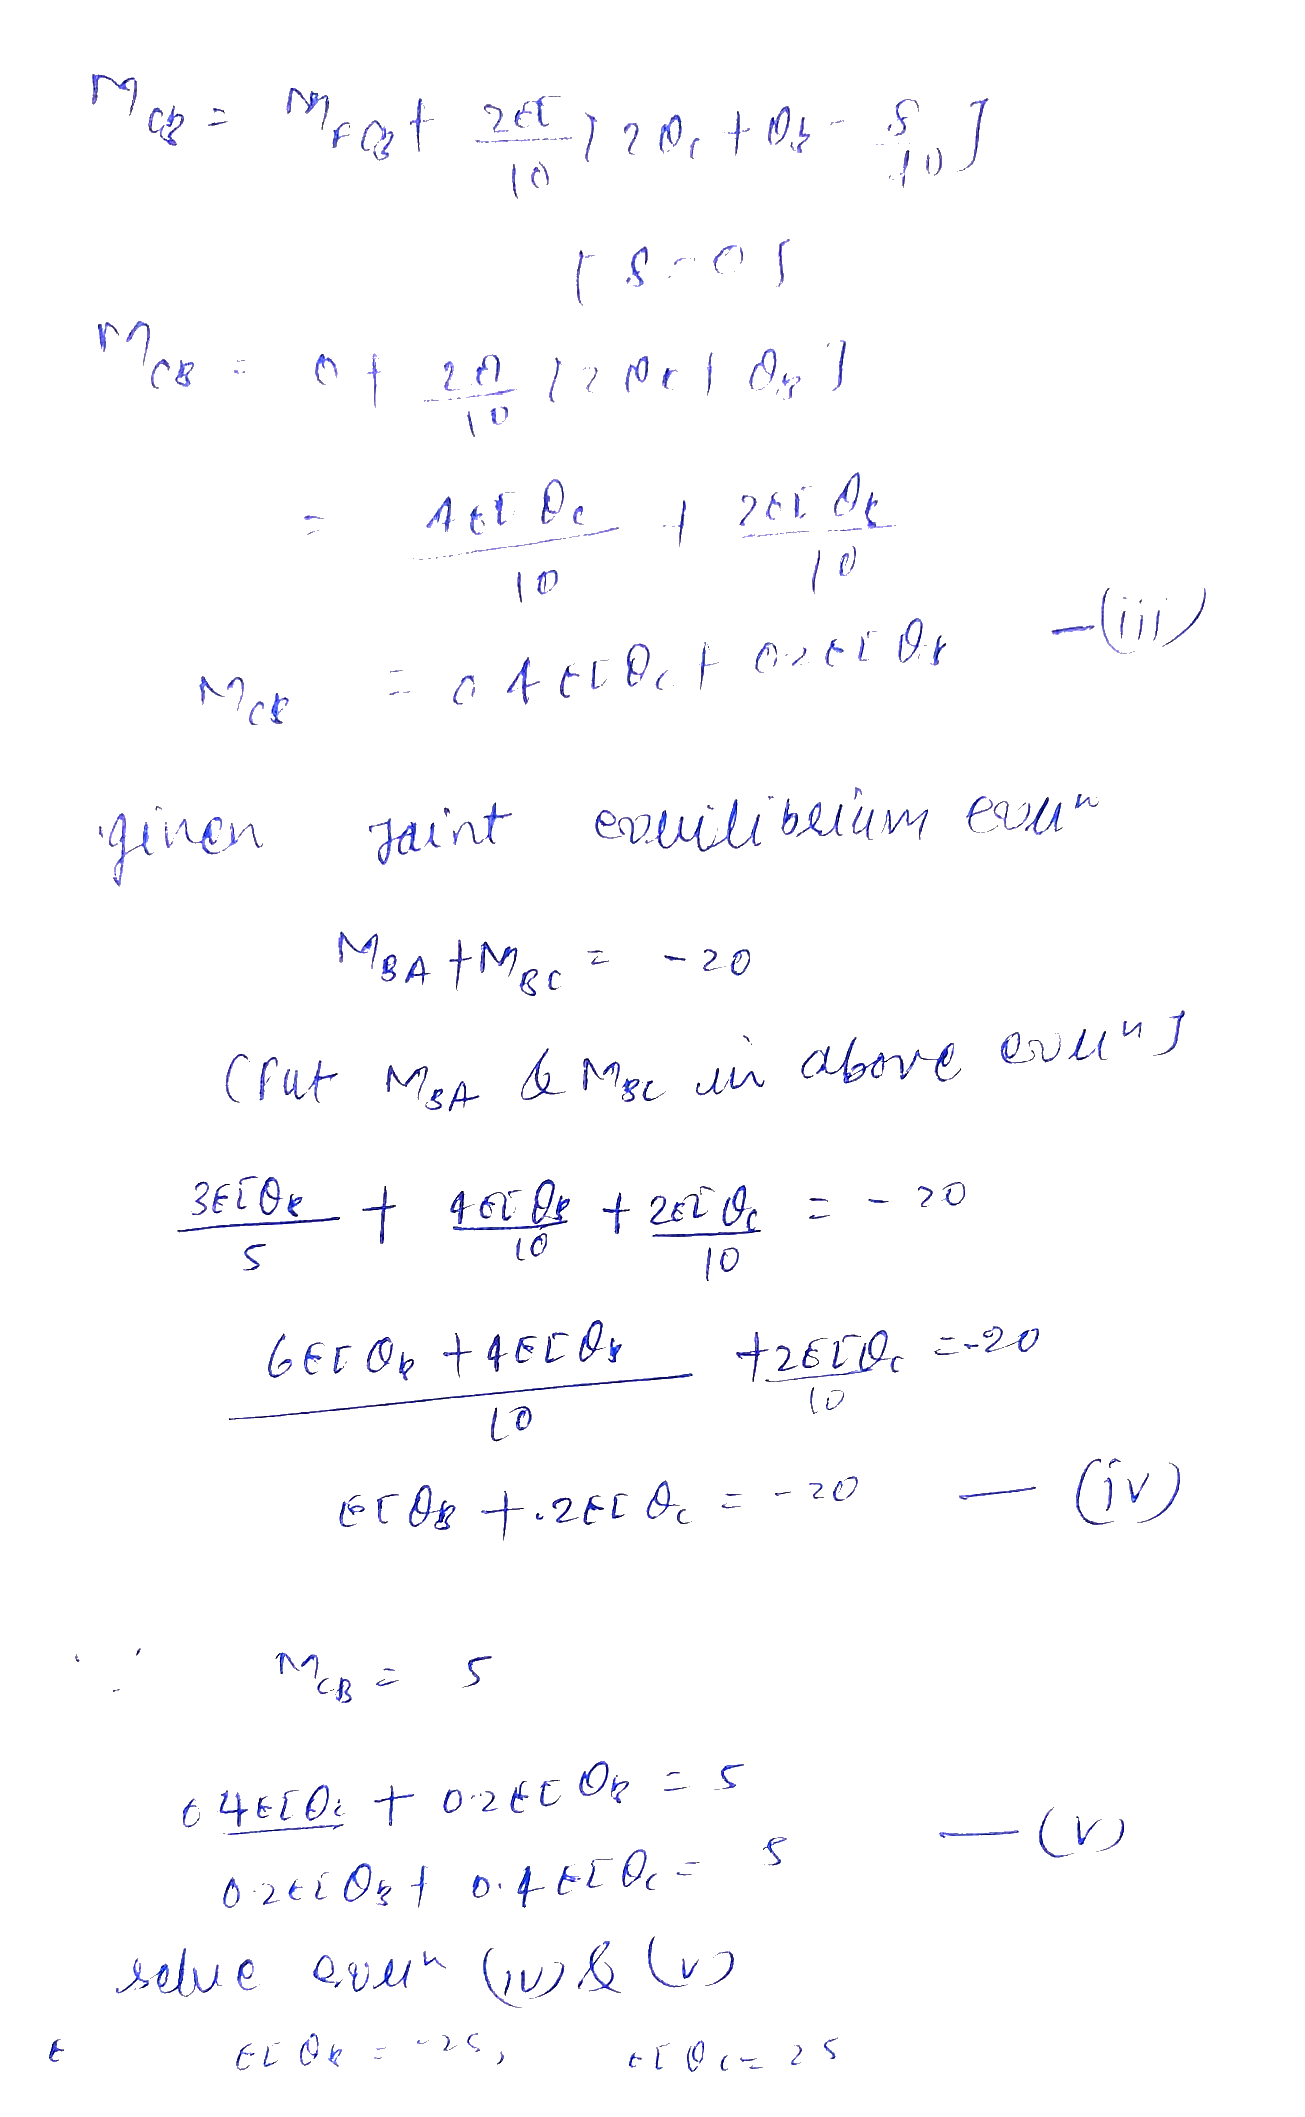 M_CB = M_FCB + 2EI/10 [2θ_C + θ_B - δ/10]
[δ = 0]
M_CB = 0 + 2EI/10 [2θ_C + θ_B]
= 4EIθ_C/10 + 2EIθ_B/10
M_CB = 0.4EIθ_C + 0.2EIθ_B —(iii)
given Joint equilibrium equn
M_BA + M_BC = -20
(Put M_BA & M_BC in above equn]
3EIθ_B/5 + 4EIθ_B/10 + 2EIθ_C/10 = -20
6EIθ_B + 4EIθ_B/10 + 2EIθ_C/10 = -20
EIθ_B + .2EIθ_C = -20 — (iv)
∵ M_CB = 5
0.4EIθ_C + 0.2EIθ_B = 5
0.2EIθ_B + 0.4EIθ_C = 5 — (v)
solve equn (iv) & (v)
EIθ_B = -25, EIθ_C = 25